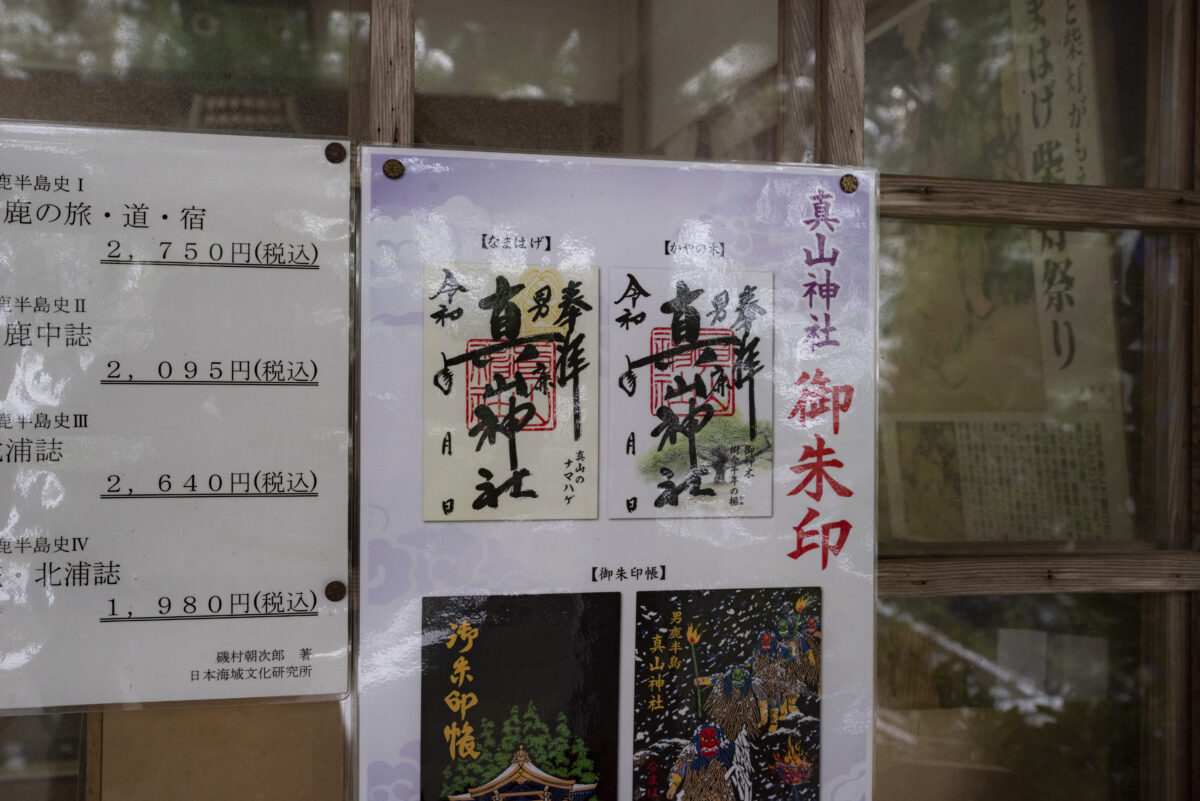 鹿半島史Ⅰ
鹿の旅・道・宿
2，750円(税込)
鹿半島史Ⅱ
鹿中誌
2，095円(税込)
鹿半島史Ⅲ
北浦誌
2，640円(税込)
鹿半島史Ⅳ
・北浦誌
1，980円(税込)
磯村朝次郎 著
日本海域文化研究所
真山神社 御朱印
【なまはげ】
奉拝
男鹿
真山神社
令和 年 月 日
真山の
ナマハゲ
【かやの木】
奉拝
男鹿
真山神社
令和 年 月 日
御神木
樹齢千年の榧
【御朱印帳】
御朱印帳
男鹿半島
真山神社
なまは
と柴灯がも
まはげ柴灯祭り